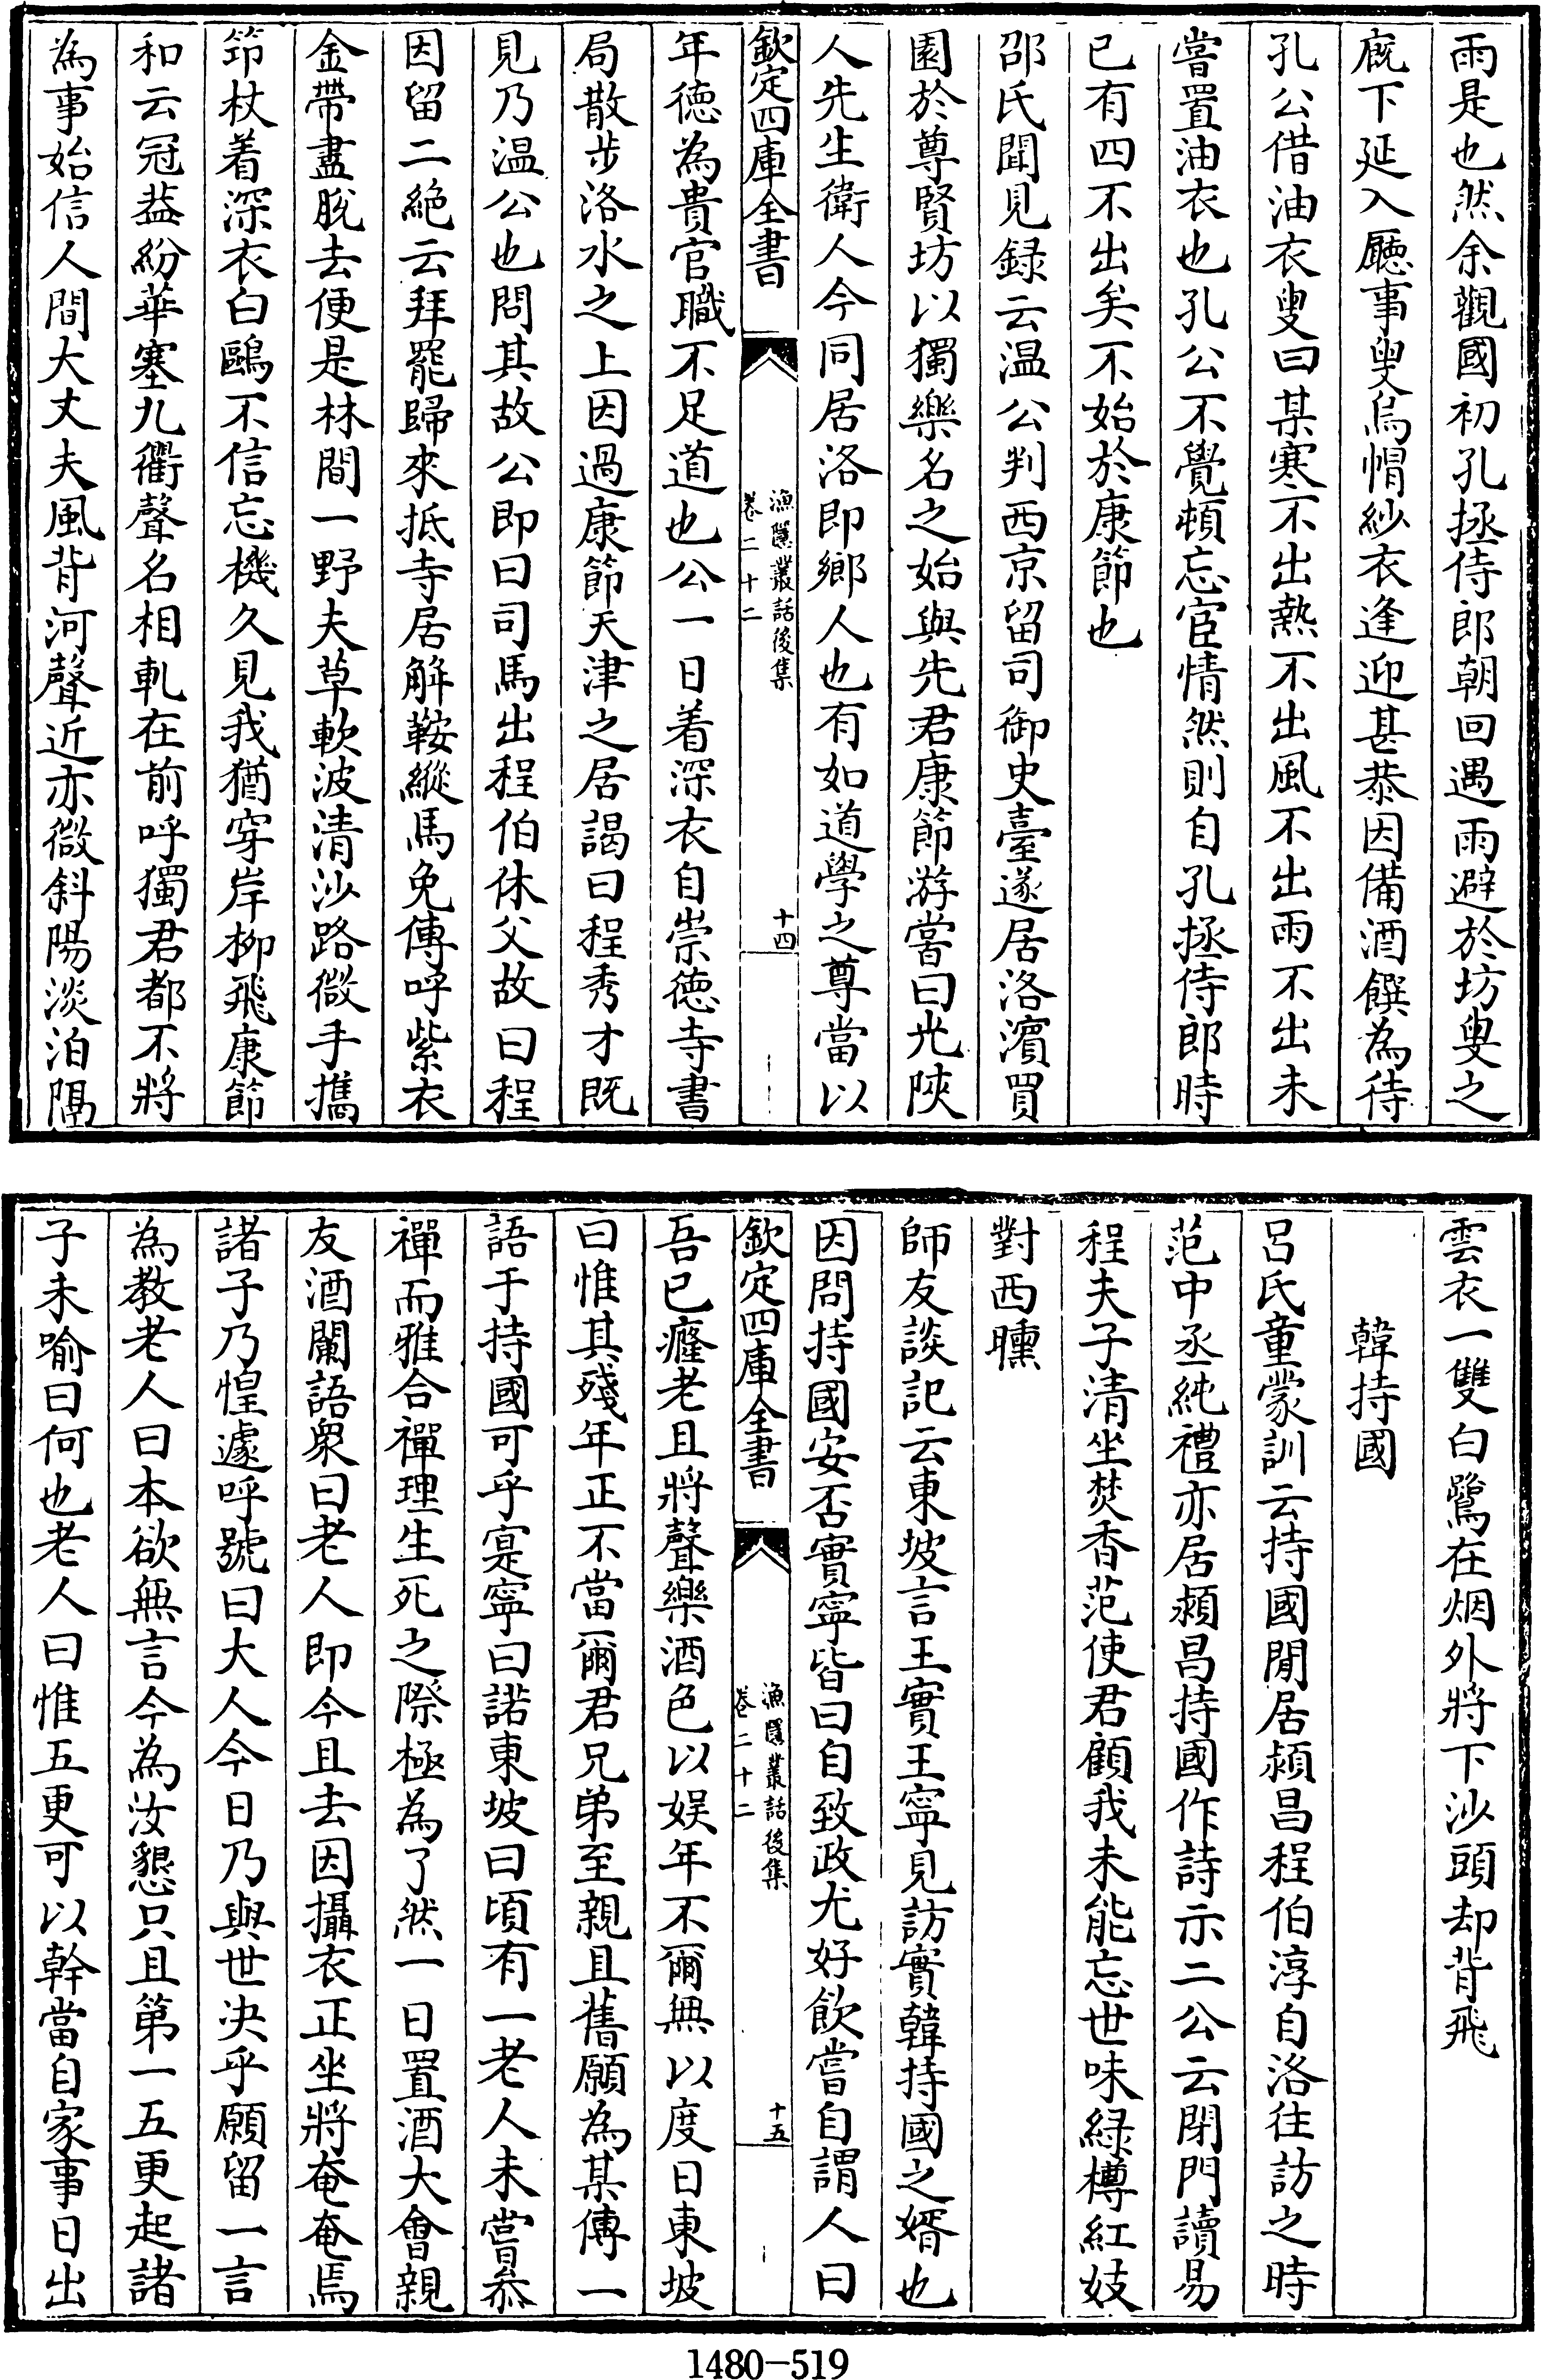 雨是也然余觀國初孔拯侍郎朝回遇雨避於坊叟之
廐下延入廳事叟烏帽紗衣逢迎甚恭因備酒饌為待
孔公借油衣叟曰某寒不出熱不出風不出雨不出未
嘗置油衣也孔公不覺頓忘宦情然則自孔拯侍郎時
已有四不出矣不始於康節也
邵氏聞見録云温公判西京留司御史臺遂居洛濱買
園於尊賢坊以獨樂名之始與先君康節游嘗曰光陜
人先生衛人今同居洛即鄉人也有如道學之尊當以
欽定四庫全書
漁隱叢話後集
卷二十二
十四
年徳為貴官職不足道也公一日着深衣自崇徳寺書
局散步洛水之上因過康節天津之居謁曰程秀才既
見乃温公也問其故公即曰司馬出程伯休父故曰程
因留二絶云拜罷歸來抵寺居解鞍縱馬免傳呼紫衣
金帶盡脫去便是林間一野夫草軟波清沙路微手攜
筇杖着深衣白鷗不信忘機久見我猶穿岸柳飛康節
和云冠葢紛華塞九衢聲名相軋在前呼獨君都不將
為事始信人間大丈夫風背河聲近亦微斜陽淡泊隔
雲衣一雙白鷺在烟外將下沙頭却背飛
韓持國
呂氏童蒙訓云持國閒居潁昌程伯淳自洛往訪之時
范中丞純禮亦居潁昌持國作詩示二公云閉門讀易
程夫子清坐焚香范使君顧我未能忘世味緑樽紅妓
對西曛
師友談記云東坡言王實王寧見訪實韓持國之婿也
因問持國安否實寧皆曰自致政尤好飲嘗自謂人曰
欽定四庫全書
漁隱叢話後集
卷二十二
十五
吾已癃老且將聲樂酒色以娱年不爾無以度日東坡
曰惟其殘年正不當爾君兄弟至親且舊願為某傳一
語于持國可乎寔寧曰諾東坡曰頃有一老人未嘗叅
禪而雅合禪理生死之際極為了然一日置酒大會親
友酒闌語衆曰老人即今且去因攝衣正坐將奄奄焉
諸子乃惶遽呼號曰大人今日乃與世决乎願留一言
為教老人曰本欲無言今為汝懇只且第一五更起諸
子未喻曰何也老人曰惟五更可以幹當自家事日出
1480-519